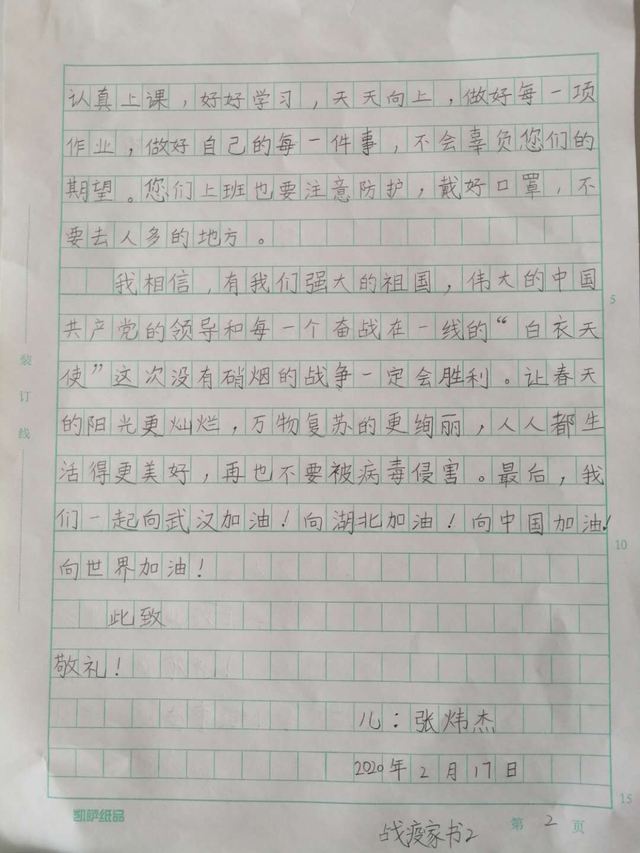 认真上课，好好学习，天天向上，做好每一项
作业，做好自己的每一件事，不会辜负您们的
期望。您们上班也要注意防护，戴好口罩，不
要去人多的地方。
我相信，有我们强大的祖国，伟大的中国
5
共产党的领导和每一个奋战在一线的“白衣天
使”这次没有硝烟的战争一定会胜利。让春天
的阳光更灿烂，万物复苏的更绚丽，人人都生
活得更美好，再也不要被病毒侵害。最后，我
们一起向武汉加油！向湖北加油！向中国加油！
10
向世界加油！
此致
敬礼！
儿：张炜杰
2020年2月17日
15
凯萨纸品
第2页
战疫家书2
装订线